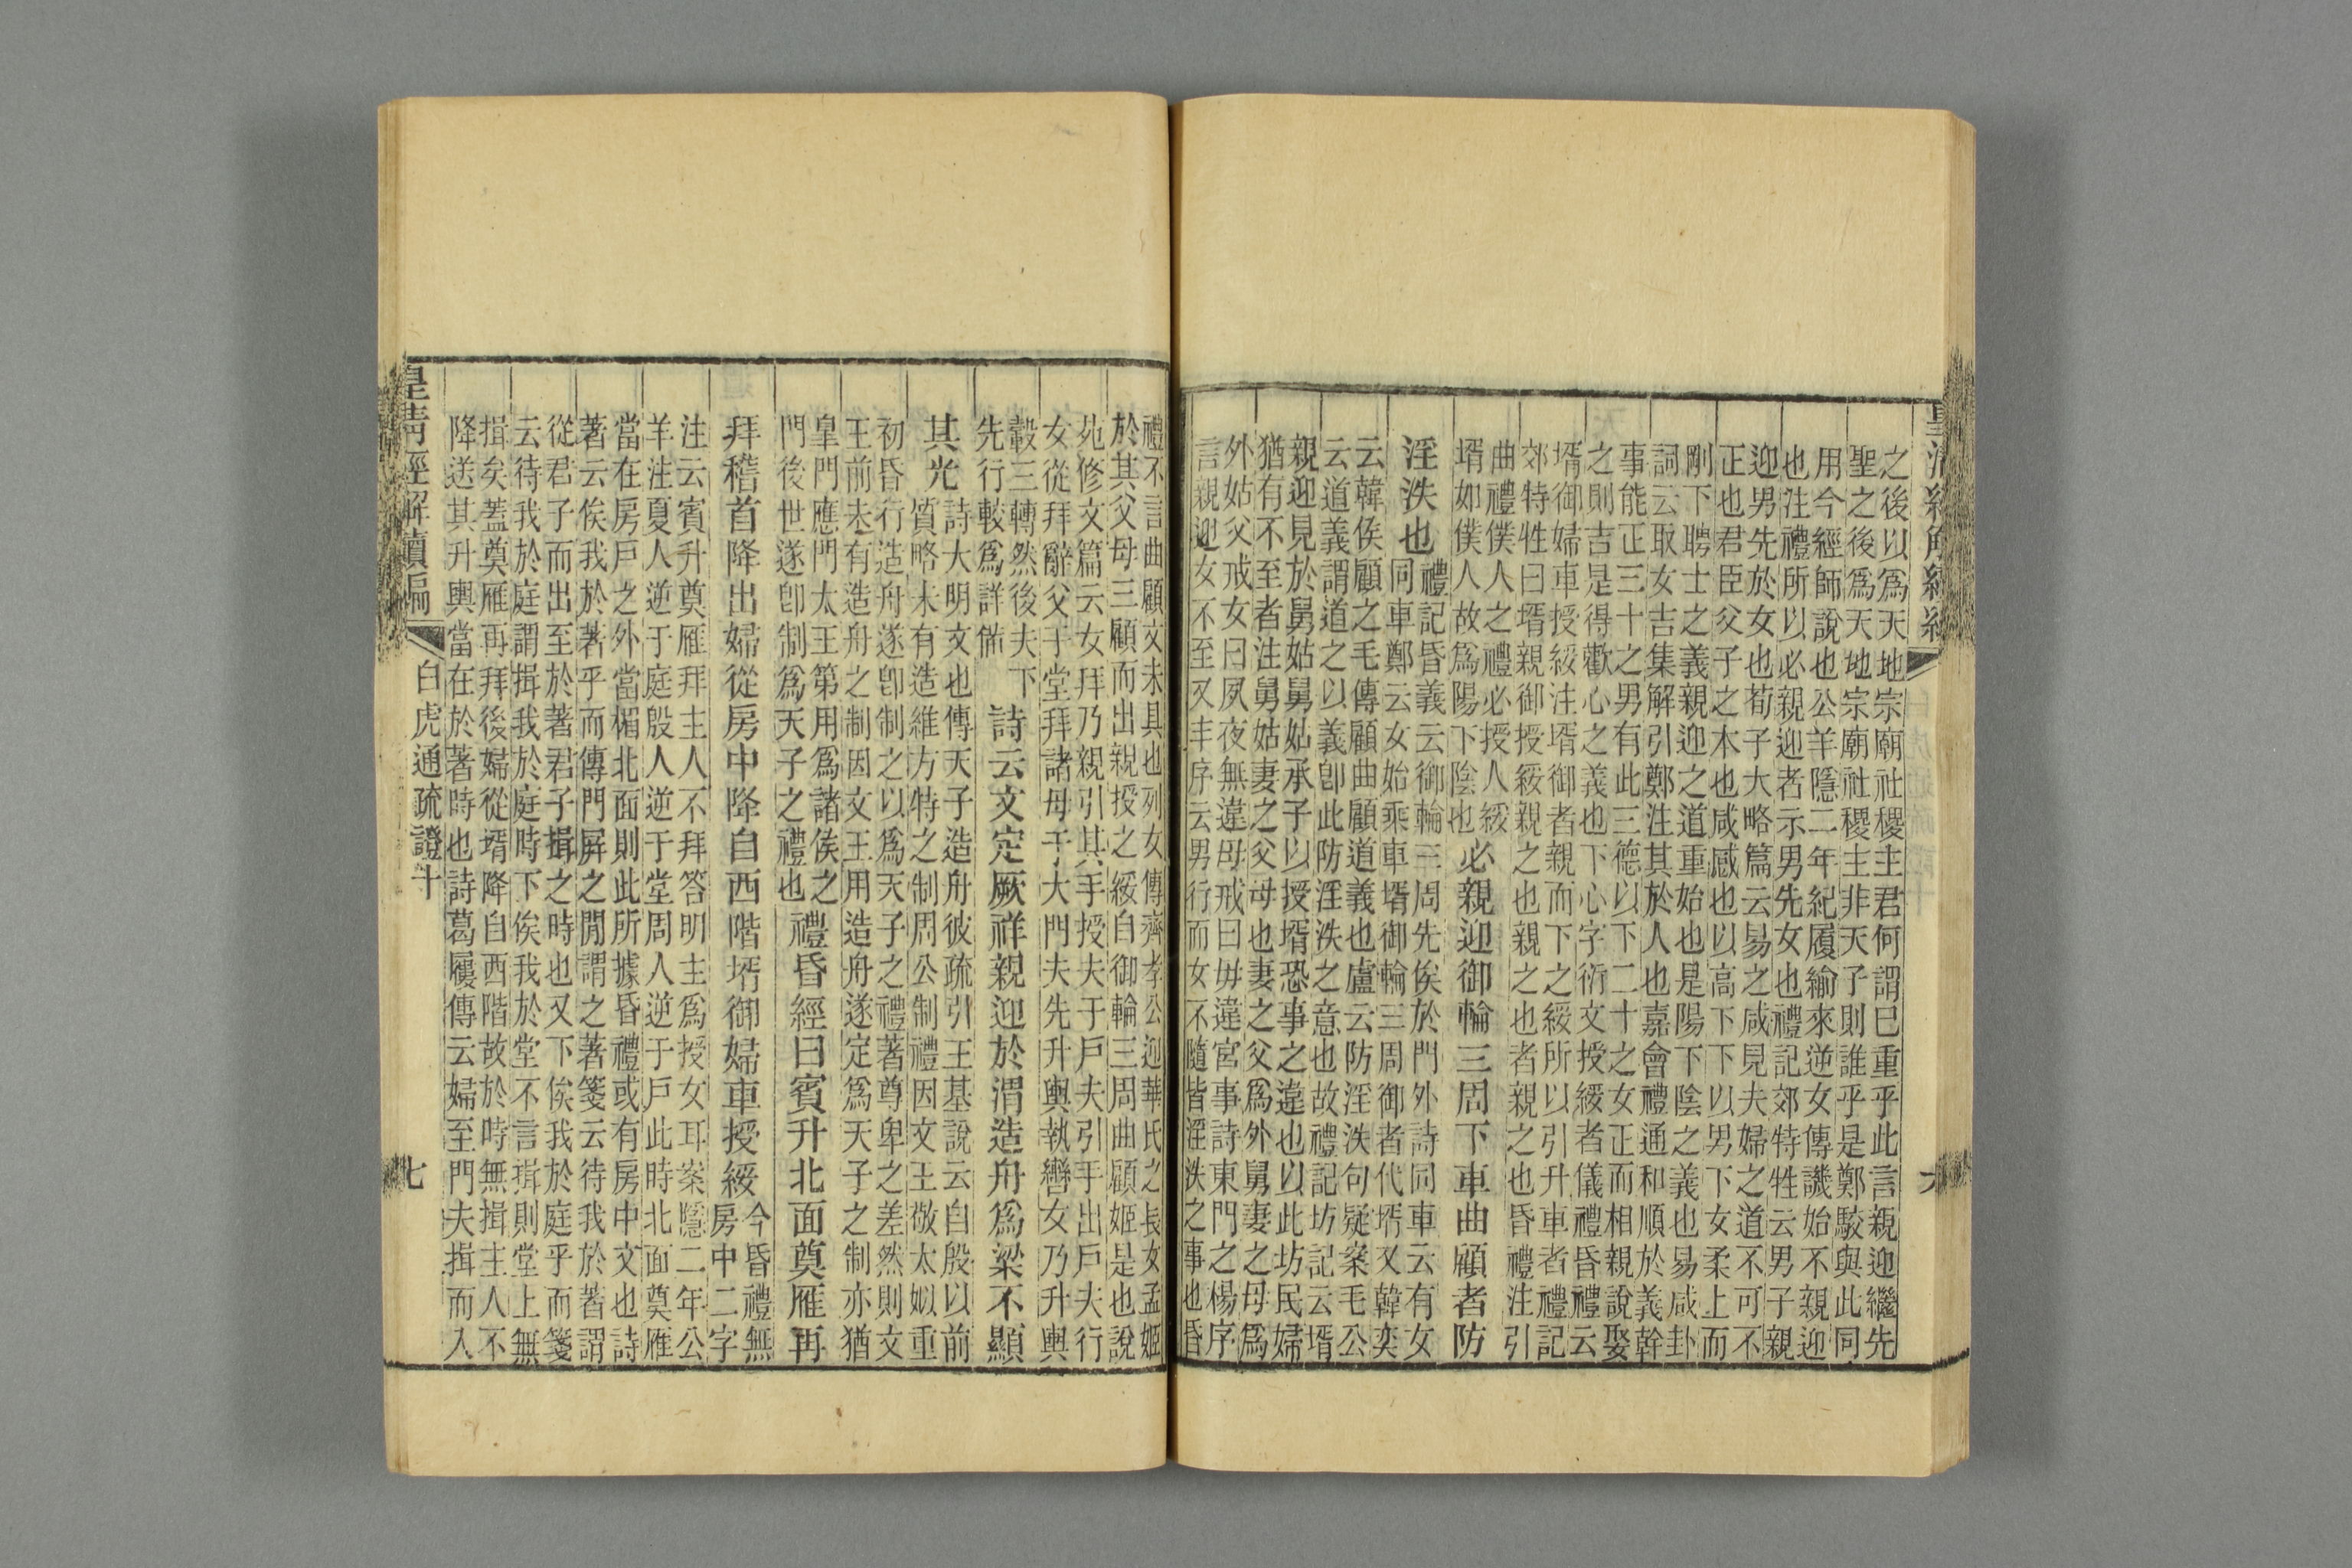 之後以爲天地宗廟社稷主君何謂已重乎此言親迎繼先
聖之後爲天地宗廟社稷主非天子則誰乎是鄭駁與此同
用今經師說也公羊隱二年紀履緰來逆女傳譏始不親迎
也注禮所以必親迎者示男先女也禮記郊特牲云男子親
迎男先於女也荀子大略篇云易之咸見夫婦之道不可不
正也君臣父子之本也咸感也以高下下以男下女柔上而
剛下聘士之義親迎之道重始也是陽下陰之義也易咸卦
詞云取女吉集解引鄭注其於人也嘉會禮通和順於義幹
事能正三十之男有此三德以下二十之女正而相親說娶
之則吉是得歡心之義也下心字衍文授綏者儀禮昏禮云
壻御婦車授綏注壻御者親而下之綏所以引升車者禮記
郊特牲曰壻親御授綏親之也親之也者親之也昏禮注引
曲禮僕人之禮必授人綏
壻如僕人故爲陽下陰也
必親迎御輪三周下車曲顧者防
淫泆也
禮記昏義云御輪三周先俟於門外詩同車云有女
同車鄭云女始乘車壻御輪三周御者代壻又韓奕
云韓侯顧之毛傳顧曲顧道義也盧云防淫泆句疑案毛公
云道義謂道之以義卽此防淫泆之意也故禮記坊記云壻
親迎見於舅姑舅姑承子以授壻恐事之違也以此坊民婦
猶有不至者注舅姑妻之父母也妻之父爲外舅妻之母爲
外姑父戒女曰夙夜無違母戒曰毋違宮事詩東門之楊序
言親迎女不至又丰序云男行而女不隨皆淫泆之事也昏
禮不言曲顧文未具也列女傳齊孝公迎華氏之長女孟姬
於其父母三顧而出親授之綏自御輪三周曲顧姬是也說
苑修文篇云女拜乃親引其手授夫于戶夫引手出戶夫行
女從拜辭父于堂拜諸母于大門夫先升輿執轡女乃升輿
轂三轉然後夫下
先行較爲詳備
詩云文定厥祥親迎於渭造舟爲梁不顯
其光
詩大明文也傳天子造舟彼疏引王基說云自殷以前
質略未有造維方特之制周公制禮因文王敬太姒重
初昏行造舟遂卽制之以爲天子之禮著尊卑之差然則文
王前未有造舟之制因文王用造舟遂定爲天子之制亦猶
皇門應門太王第用爲諸侯之
門後世遂卽制爲天子之禮也
禮昏經曰賓升北面奠雁再
拜稽首降出婦從房中降自西階壻御婦車授綏
今昏禮無
房中二字
注云賓升奠雁拜主人不拜答明主爲授女耳案隱二年公
羊注夏人逆于庭殷人逆于堂周人逆于戶此時北面奠雁
當在房戶之外當楣北面則此所據昏禮或有房中文也詩
著云俟我於著乎而傳門屏之閒謂之著箋云待我於著謂
從君子而出至於著君子揖之時也又下俟我於庭乎而箋
云待我於庭謂揖我於庭時下俟我於堂不言揖則堂上無
揖矣蓋奠雁再拜後婦從壻降自西階故於時無揖主人不
降送其升輿當在於著時也詩葛屨傳云婦至門夫揖而入
皇清經解續編
白虎通疏證十
七